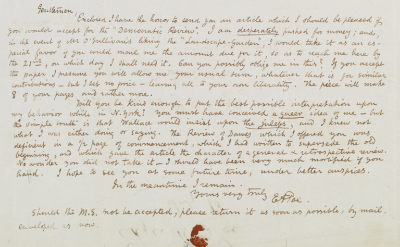 Gentlemen,
Enclosed I have the honor to send you an article which I should be pleased if
you would accept for the "Democratic Review". I am desperately pushed for money; and,
in the event of Mr O'Sullivan's liking the "Landscape-Garden", I would take it as an es-
pecial favor if you could mail me the amount due for it, so as to reach me here by
the 21st, on which day I shall need it. Can you possibly oblige me in this? If you accept
the paper I presume you will allow me your usual sum, whatever that is for similar
contributions — but I set no price — leaving all to your own liberality. The piece will make
8 of your pages and rather more.
Will you be kind enough to put the best possible interpretation upon
my behavior while in N-York? You must have conceived a queer idea of me — but
the simple truth is that Wallace would insist upon the juleps, and I knew not
what I was either doing or saying. The Review of Dawes which I offered you was
deficient in a ½ page of commencement, which I had written to supersede the old
beginning, and which gave the article the character of a general & retrospective review.
No wonder you did not take it — I should have been very much mortified if you
had. I hope to see you at some future time, under better auspices.
In the meantime I remain.
Yours very truly
EAPoe.
Should the M.S. not be accepted, please return it as soon as possible, by mail.
enveloped as now.